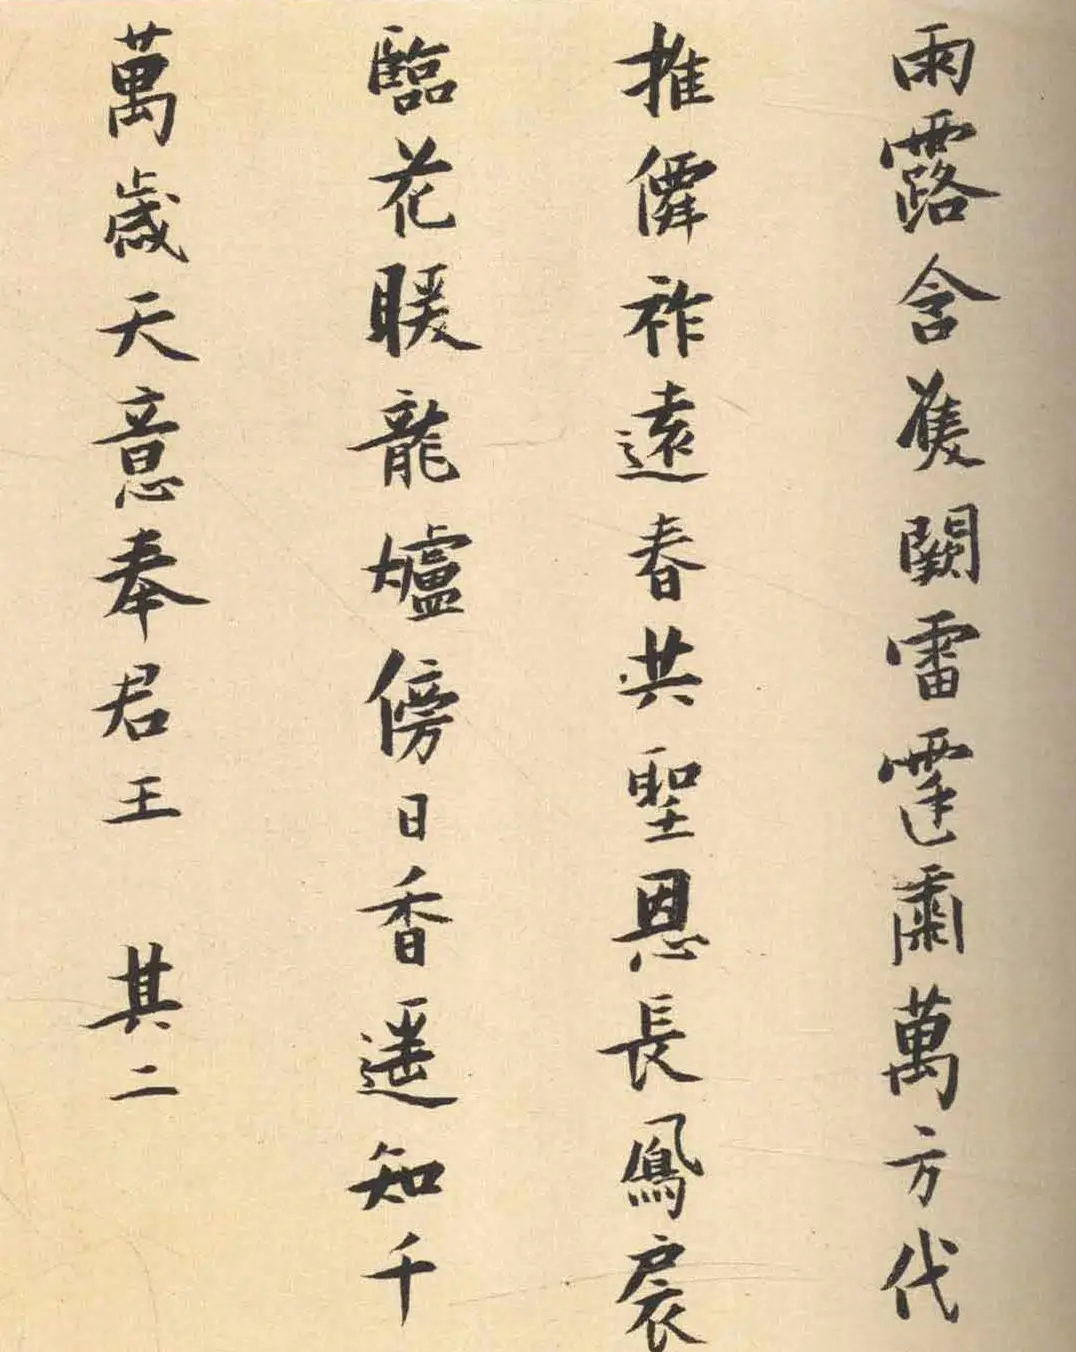 雨露含雙闕雷霆肅萬方代
推僊祚遠春共聖恩長鳳扆
臨花暖龍爐傍日香遥知千
萬歲天意奉君王 其二